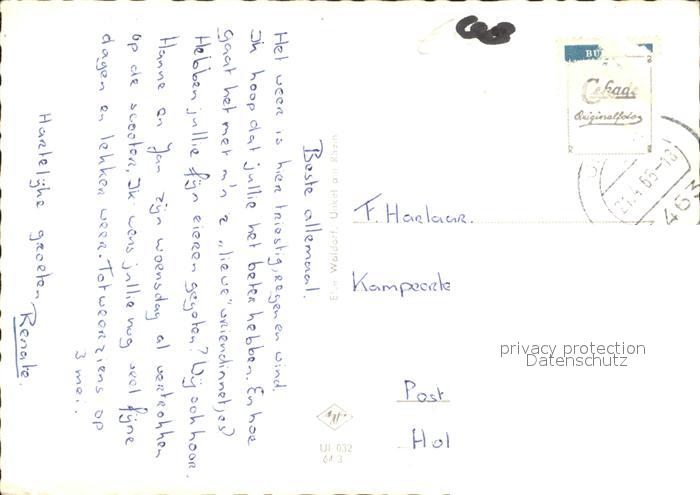 Beste allemaal.
Het weer is hier triestig, regen en wind.
Ik hoop dat jullie het beter hebben. En hoe
gaat het met m'n 2 „lieve” vriendinnetjes?
Hebben jullie fijn eieren gegeten? Wij ook hoor.
Hanne en Jan zijn woensdag al vertrokken
op de scooter. Ik wens jullie nog veel fijne
dagen en lekker weer. Tot weerziens op
3 mei.
Hartelijke groeten,
Renate.
Waldorf, Unkel am Rhein
Cekade
Originalfoto
21.4.65-18
463
F. Harlaar.
Kampeerte
privacy protection
Datenschutz
Post
Hol
UI 032
64 3